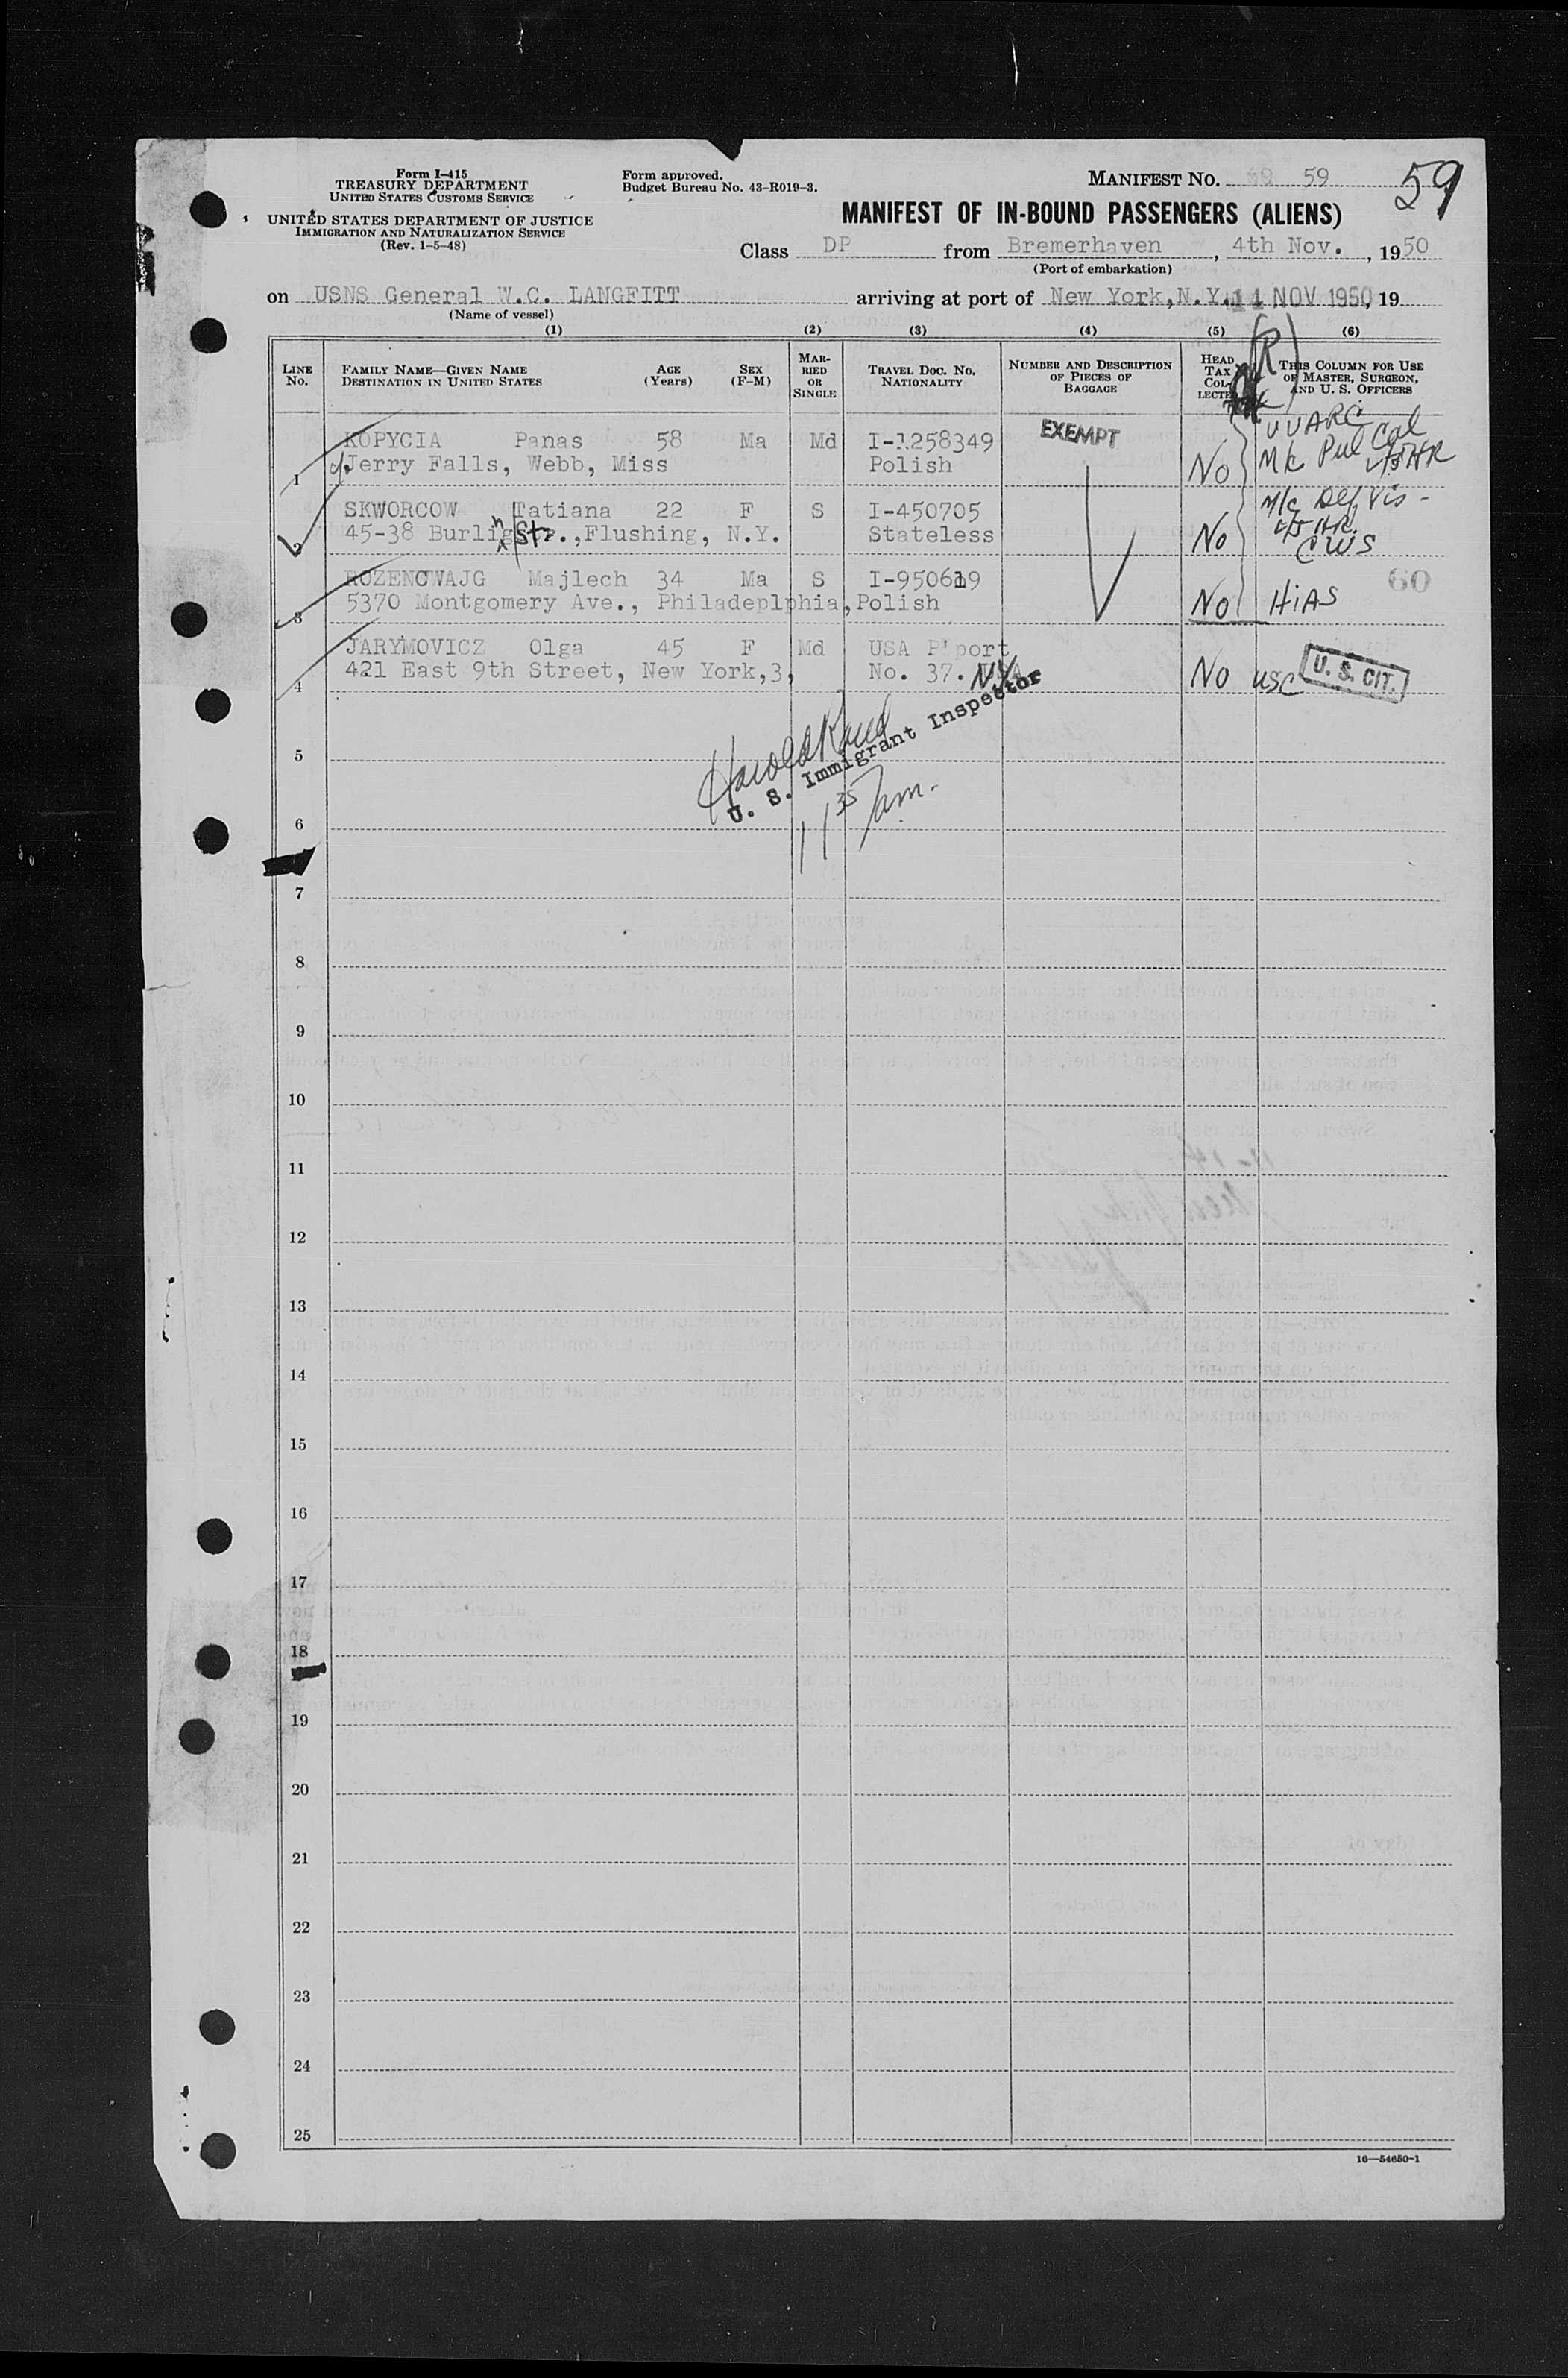 Form I-415
TREASURY DEPARTMENT
UNITED STATES CUSTOMS SERVICE
UNITED STATES DEPARTMENT OF JUSTICE
IMMIGRATION AND NATURALIZATION SERVICE
(Rev. 1-5-48)
Form approved.
Budget Bureau No. 43-R019-3.
MANIFEST NO. 59
59
MANIFEST OF IN-BOUND PASSENGERS (ALIENS)
Class DP from Bremerhaven, 4th Nov., 1950
(Port of embarkation)
on USNS General W.C. LANGFITT arriving at port of New York, N.Y. 14 NOV 1950, 19
(Name of vessel)
(1) (2) (3) (4) (5) (6)
LINE No. FAMILY NAME—GIVEN NAME DESTINATION IN UNITED STATES AGE (Years) SEX (F-M) MARRIED OR SINGLE TRAVEL DOC. NO. NATIONALITY NUMBER AND DESCRIPTION OF PIECES OF BAGGAGE HEAD TAX COLLECTED THIS COLUMN FOR USE OF MASTER, SURGEON, AND U. S. OFFICERS
(R)
KOPYCIA Panas 58 Ma Md I-1258349 EXEMPT UUARC
1 c/o Jerry Falls, Webb, Miss Polish No Mc Pul Cal
SKWORCOW Tatiana 22 F S I-450705 M/c Def Vis -
2 45-38 Burling Str.,Flushing, N.Y. Stateless No CWS
ROZENCWAJG Majlech 34 Ma S I-950619 60
3 5370 Montgomery Ave., Philadeplphia, Polish No HIAS
JARYMOVICZ Olga 45 F Md USA P'port
4 421 East 9th Street, New York,3, No. 37. NY No USC U. S. CIT.
Harold
U. S. Immigrant Inspector
11 35 am.
5
6
7
8
9
10
11
12
13
14
15
16
17
18
19
20
21
22
23
24
25
16—54650-1